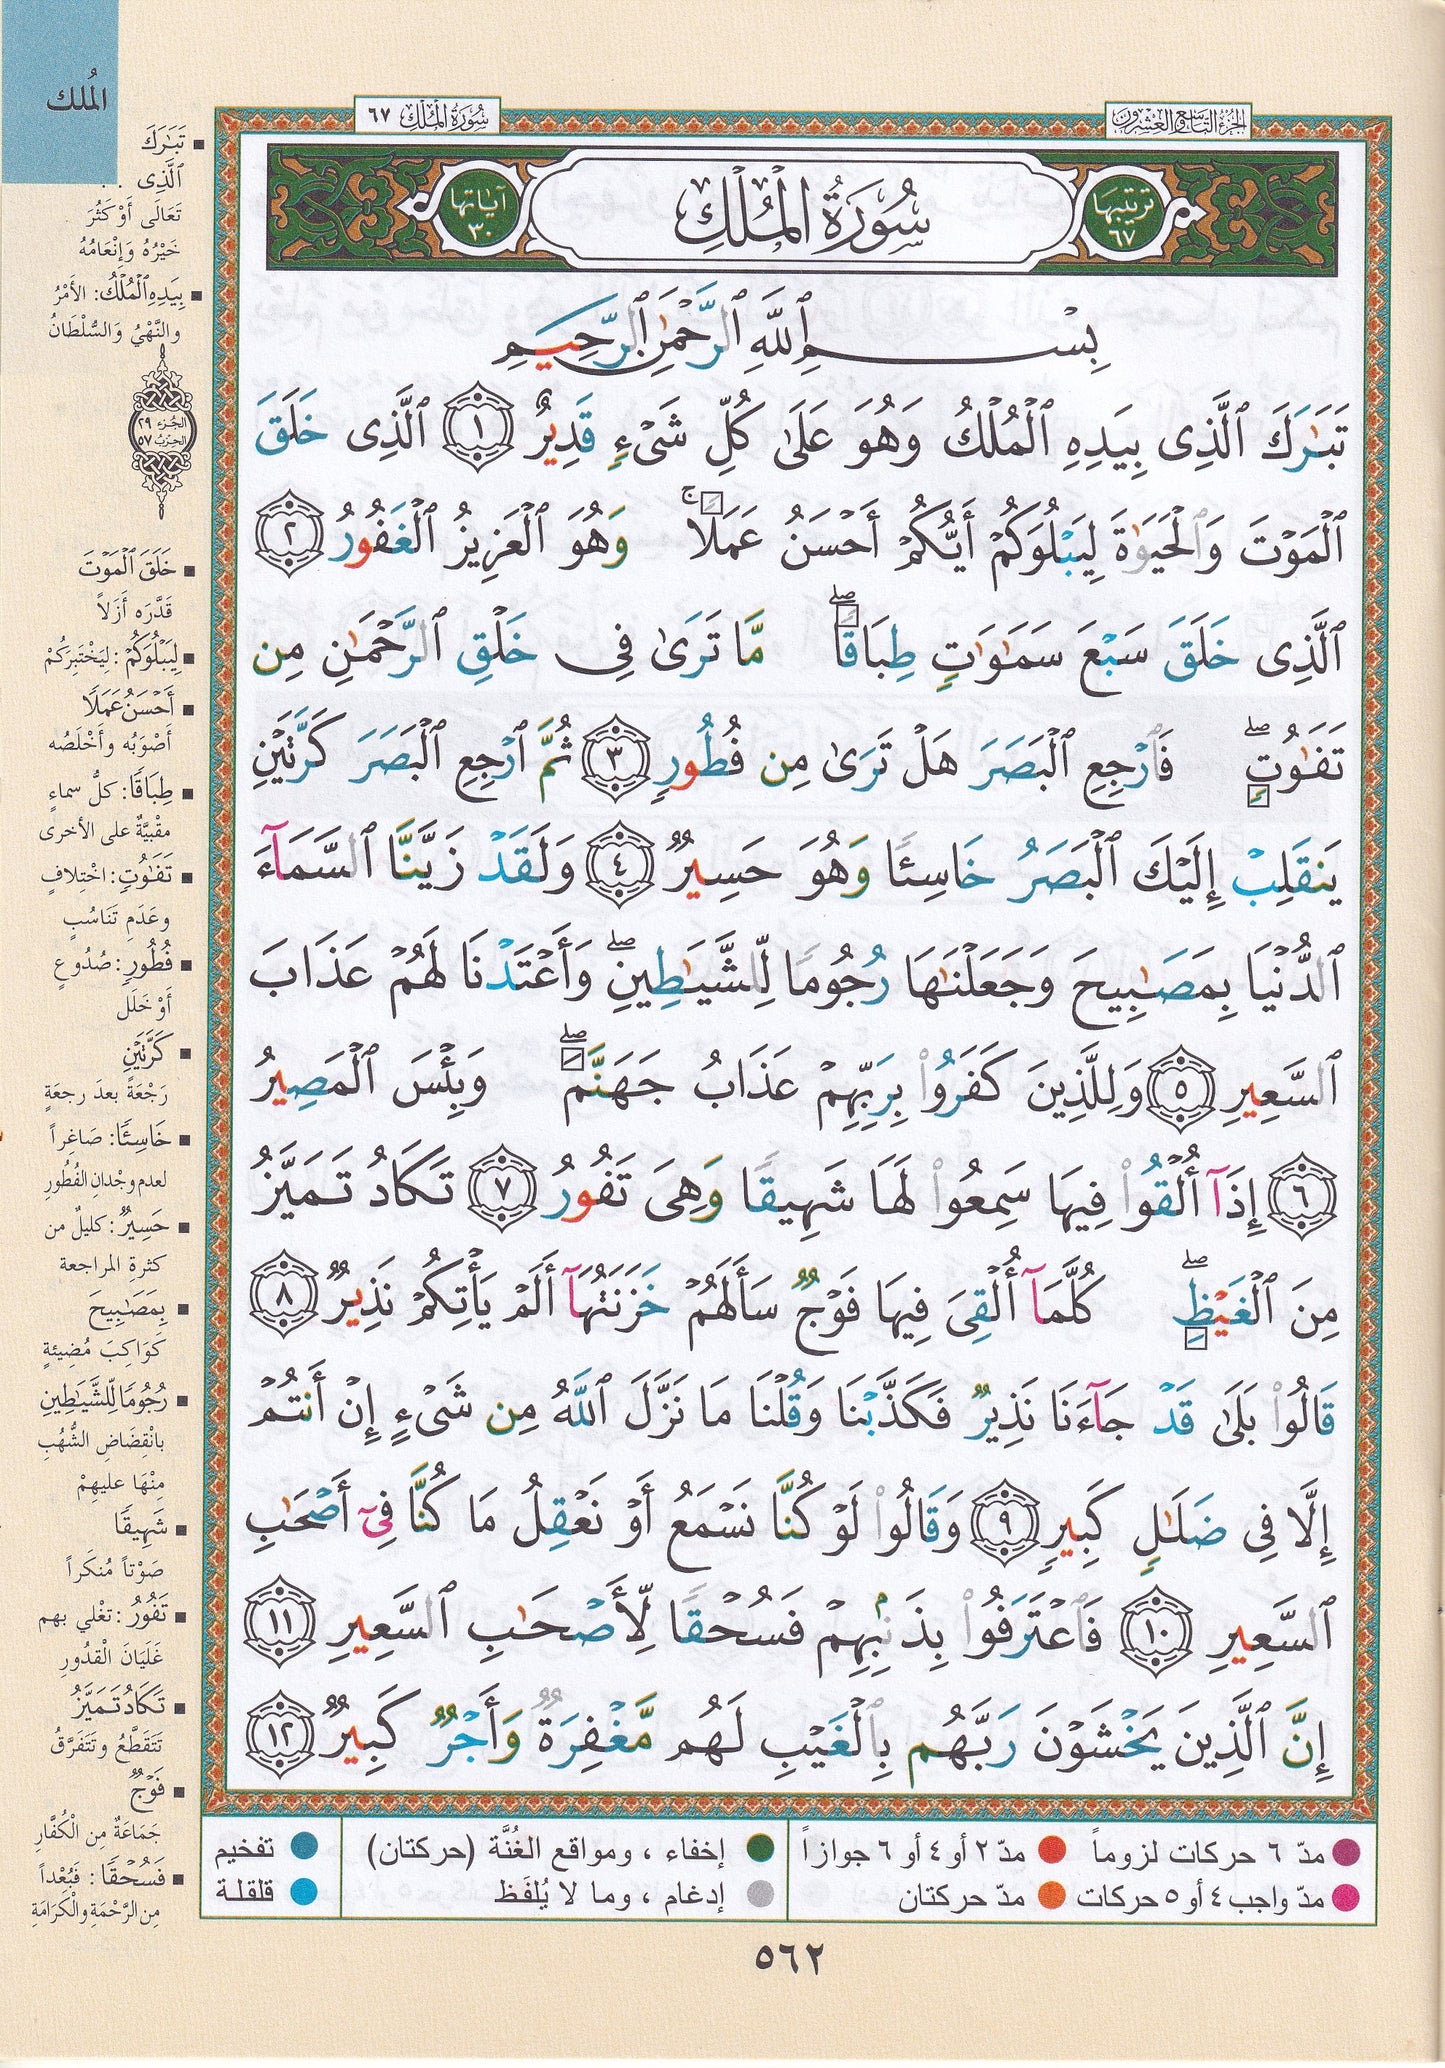 الجزء التاسع والعشرون
سورة الملك ٦٧
الملك
ترتيبها ٦٧
سُورَةُ الْمُلْكِ
آياتها ٣٠
بِسْمِ ٱللَّهِ ٱلرَّحْمَٰنِ ٱلرَّحِيمِ
تَبَٰرَكَ ٱلَّذِى بِيَدِهِ ٱلْمُلْكُ وَهُوَ عَلَىٰ كُلِّ شَىْءٍ قَدِيرٌ ١ ٱلَّذِى خَلَقَ
ٱلْمَوْتَ وَٱلْحَيَوٰةَ لِيَبْلُوَكُمْ أَيُّكُمْ أَحْسَنُ عَمَلًاۚ وَهُوَ ٱلْعَزِيزُ ٱلْغَفُورُ ٢
ٱلَّذِى خَلَقَ سَبْعَ سَمَٰوَٰتٍ طِبَاقًاۖ مَّا تَرَىٰ فِى خَلْقِ ٱلرَّحْمَٰنِ مِن
تَفَٰوُتٍۖ فَٱرْجِعِ ٱلْبَصَرَ هَلْ تَرَىٰ مِن فُطُورٍ ٣ ثُمَّ ٱرْجِعِ ٱلْبَصَرَ كَرَّتَيْنِ
يَنقَلِبْ إِلَيْكَ ٱلْبَصَرُ خَاسِئًا وَهُوَ حَسِيرٌ ٤ وَلَقَدْ زَيَّنَّا ٱلسَّمَآءَ
ٱلدُّنْيَا بِمَصَٰبِيحَ وَجَعَلْنَٰهَا رُجُومًا لِّلشَّيَٰطِينِۖ وَأَعْتَدْنَا لَهُمْ عَذَابَ
ٱلسَّعِيرِ ٥ وَلِلَّذِينَ كَفَرُوا۟ بِرَبِّهِمْ عَذَابُ جَهَنَّمَۖ وَبِئْسَ ٱلْمَصِيرُ
٦ إِذَآ أُلْقُوا۟ فِيهَا سَمِعُوا۟ لَهَا شَهِيقًا وَهِىَ تَفُورُ ٧ تَكَادُ تَمَيَّزُ
مِنَ ٱلْغَيْظِۖ كُلَّمَآ أُلْقِىَ فِيهَا فَوْجٌ سَأَلَهُمْ خَزَنَتُهَآ أَلَمْ يَأْتِكُمْ نَذِيرٌ ٨
قَالُوا۟ بَلَىٰ قَدْ جَآءَنَا نَذِيرٌ فَكَذَّبْنَا وَقُلْنَا مَا نَزَّلَ ٱللَّهُ مِن شَىْءٍ إِنْ أَنتُمْ
إِلَّا فِى ضَلَٰلٍ كَبِيرٍ ٩ وَقَالُوا۟ لَوْ كُنَّا نَسْمَعُ أَوْ نَعْقِلُ مَا كُنَّا فِىٓ أَصْحَٰبِ
ٱلسَّعِيرِ ١٠ فَٱعْتَرَفُوا۟ بِذَنۢبِهِمْ فَسُحْقًا لِّأَصْحَٰبِ ٱلسَّعِيرِ ١١
إِنَّ ٱلَّذِينَ يَخْشَوْنَ رَبَّهُم بِٱلْغَيْبِ لَهُم مَّغْفِرَةٌ وَأَجْرٌ كَبِيرٌ ١٢
تَبَٰرَكَ
ٱلَّذِى . .
تَعَالَى أَوْ كَثُرَ
خَيْرُهُ وَإِنْعَامُهُ
بِيَدِهِ ٱلْمُلْكُ: الأَمْرُ
والنَّهْيُ وَالسُّلْطَانُ
الجزء ٢٩
الحزب ٥٧
خَلَقَ ٱلْمَوْتَ
قَدَّرَه أَزَلاً
لِيَبْلُوَكُمْ: لِيَخْتَبِرَكُمْ
أَحْسَنُ عَمَلًا
أَصْوَبُه وأَخْلَصُه
طِبَاقًا: كلُّ سماءٍ
مقْبيَّةٌ على الأخرى
تَفَٰوُتٍ: اخْتِلافٍ
وعَدَمِ تَنَاسُبٍ
فُطُورٍ: صُدُوعٍ
أَوْ خَلَل
كَرَّتَيْنِ
رَجْعَةً بعدَ رجعَةٍ
خَاسِئًا: صَاغِراً
لعدم وِجْدانِ الفُطُورِ
حَسِيرٌ: كليلٌ من
كثرةِ المراجعة
بِمَصَٰبِيحَ
كَوَاكِبَ مُضِيئةٍ
رُجُومًا لِّلشَّيَٰطِينِ
بانْقِضَاضِ الشُّهُبِ
مِنْهَا عليهِمْ
شَهِيقًا
صَوْتاً مُنكَراً
تَفُورُ: تغْلي بهم
غَلَيَانَ الْقدُورِ
تَكَادُ تَمَيَّزُ
تَتَقَطَّعُ وتَتَفَرَّقُ
فَوْجٌ
جَمَاعَةٌ مِن الْكُفَّارِ
فَسُحْقًا: فَبُعْداً
مِن الرَّحْمَةِ والْكَرَامَةِ
مدّ ٦ حركات لزوماً مدّ ٢ أو ٤ أو ٦ جوازاً
مدّ واجب ٤ أو ٥ حركات مدّ حركتان
إخفاء ، ومواقع الغُنَّة (حركتان)
إدغام ، وما لا يُلفَظ
تفخيم
قلقلة
٥٦٢